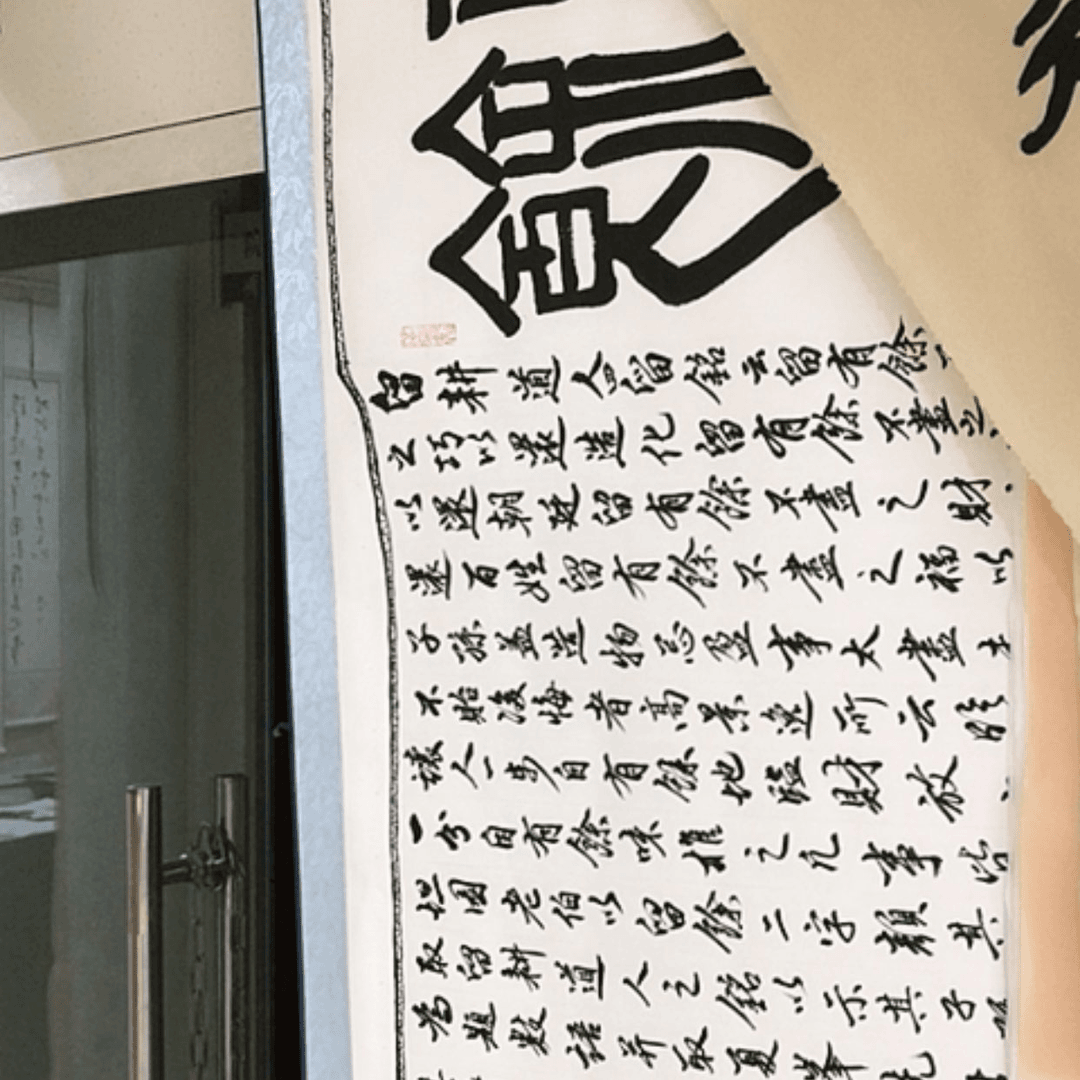 餘
留耕道人四留銘云留有餘
之巧以還造化留有餘不盡之
以還朝廷留有餘不盡之財
還百姓留有餘不盡之福以
子孫蓋造物忌盈事太盡未
不貽後悔者高景逸所云臨
讓人一步自有餘地臨財放
一分自有餘味推之凡事皆
坦園老伯以留餘二字顏其
取留耕道人之銘以示其子
為題數語并取夏峯先